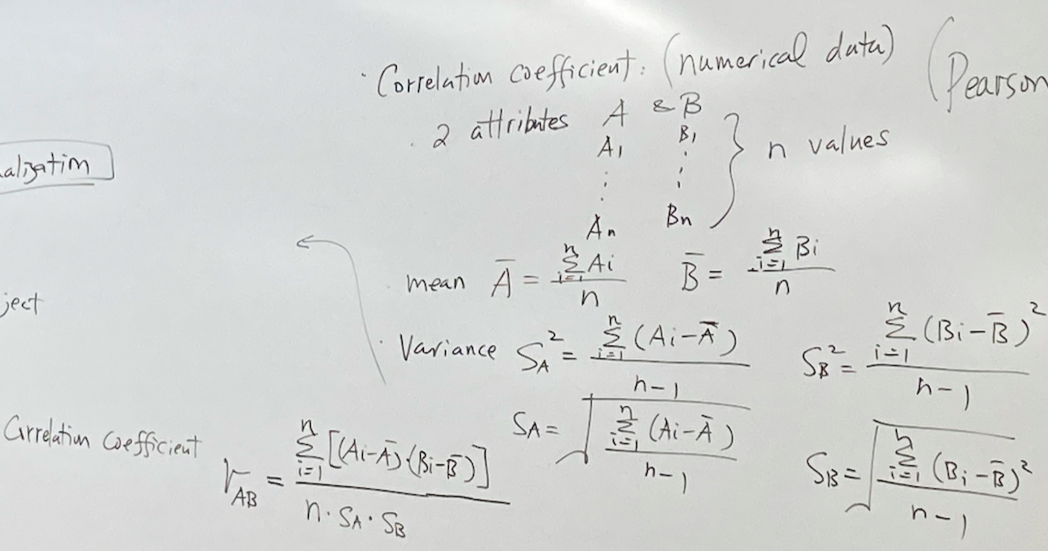 · Correlation coefficient: (numerical data) (Pearson
· 2 attributes A & B
A₁ B₁ } n values
⋮ ⋮
Aₙ Bₙ
· mean A̅ = ∑ᵢ₌₁ⁿ Ai / n B̅ = ∑ᵢ₌₁ⁿ Bi / n
· Variance S_A² = ∑ᵢ₌₁ⁿ (Ai - A̅) / n-1 S_B² = ∑ᵢ₌₁ⁿ (Bi - B̅)² / n-1
S_A = √(∑ᵢ₌₁ⁿ (Ai - A̅) / n-1) S_B = √(∑ᵢ₌₁ⁿ (Bi - B̅)² / n-1)
Correlation Coefficient
r_AB = ∑ᵢ₌₁ⁿ [(Ai-A̅)·(Bi-B̅)] / n·S_A·S_B
ject